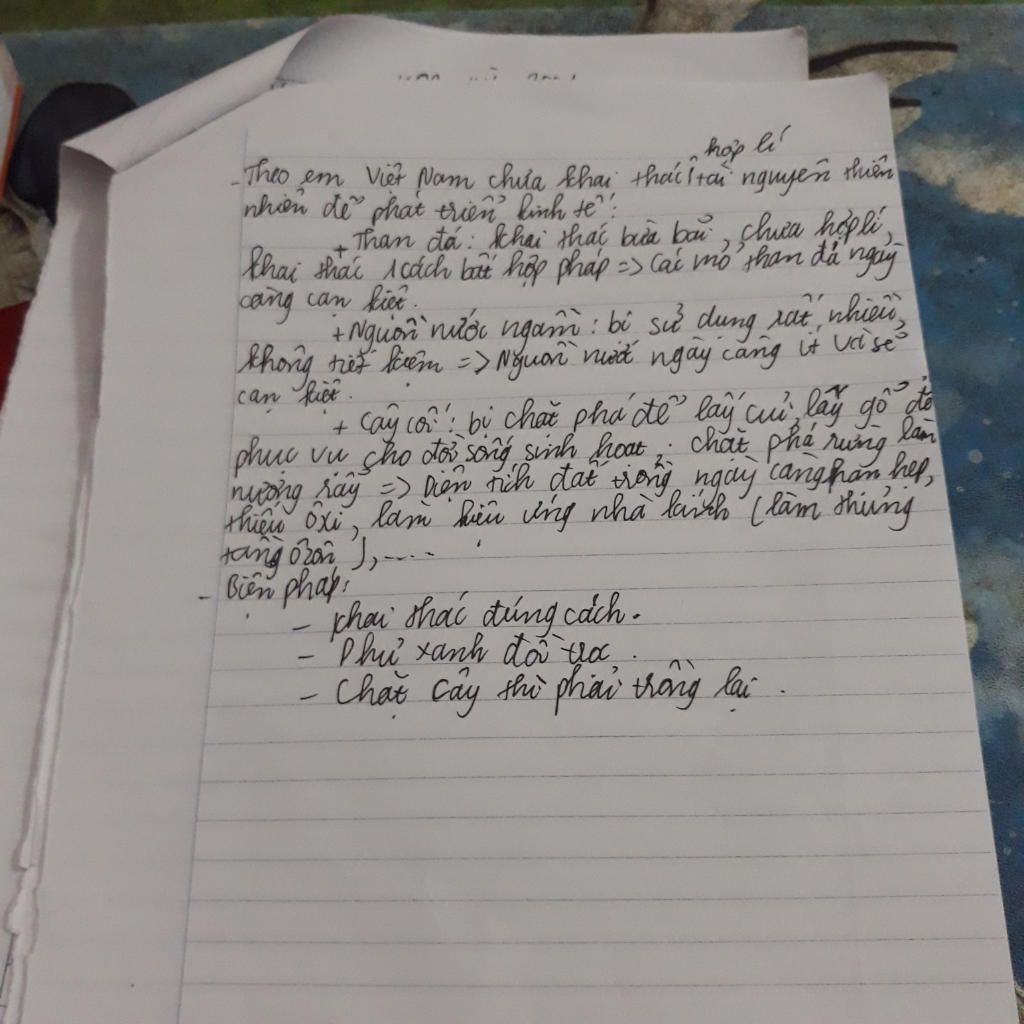 hợp lí
- Theo em Việt Nam chưa khai thác tài nguyên thiên
nhiên để phát triển kinh tế :
+ Than đá : khai thác bừa bãi, chưa hợp lí,
khai thác 1 cách bất hợp pháp => Các mỏ than đá ngày
càng cạn kiệt.
+ Nguồn nước ngầm : bị sử dụng rất nhiều,
không tiết kiệm => Nguồn nước ngày càng ít và sẽ
cạn kiệt.
+ Cây cối : bị chặt phá để lấy củi, lấy gỗ để
phục vụ cho đời sống sinh hoạt ; chặt phá rừng làm
nương rẫy => Diện tích đất trồng ngày càng hẹp,
thiếu ôxi, làm hiệu ứng nhà kính (làm thủng
tầng ôzôn), .....
- Biện pháp :
- Khai thác đúng cách.
- Phủ xanh đồi trọc.
- Chặt cây thì phải trồng lại.